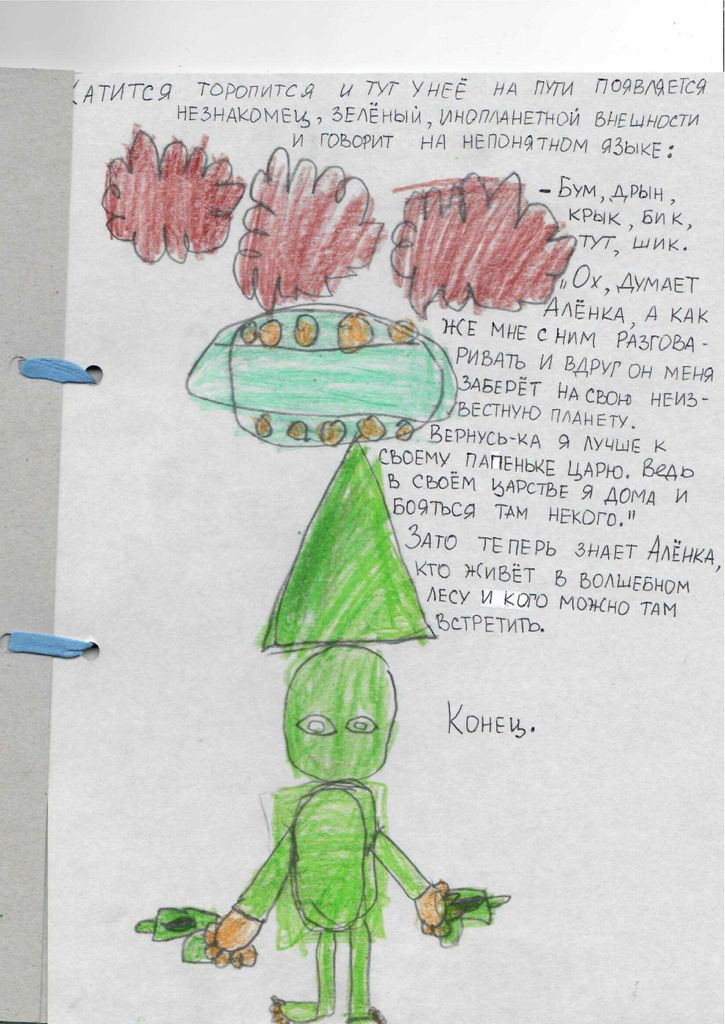 КАТИТСЯ ТОРОПИТСЯ И ТУТ У НЕЁ НА ПУТИ ПОЯВЛЯЕТСЯ
НЕЗНАКОМЕЦ, ЗЕЛЁНЫЙ, ИНОПЛАНЕТНОЙ ВНЕШНОСТИ
И ГОВОРИТ НА НЕПОНЯТНОМ ЯЗЫКЕ:
- БУМ, ДРЫН,
КРЫК, БИК,
ТУТ, ШИК.
„ОХ, ДУМАЕТ
АЛЁНКА, А КАК
ЖЕ МНЕ С НИМ РАЗГОВА-
РИВАТЬ И ВДРУГ ОН МЕНЯ
ЗАБЕРЁТ НА СВОЮ НЕИЗ-
ВЕСТНУЮ ПЛАНЕТУ.
ВЕРНУСЬ-КА Я ЛУЧШЕ К
СВОЕМУ ПАПЕНЬКЕ ЦАРЮ. ВЕДЬ
В СВОЁМ ЦАРСТВЕ Я ДОМА И
БОЯТЬСЯ ТАМ НЕКОГО."
ЗАТО ТЕПЕРЬ ЗНАЕТ АЛЁНКА,
КТО ЖИВЁТ В ВОЛШЕБНОМ
ЛЕСУ И КОГО МОЖНО ТАМ
ВСТРЕТИТЬ.
КОНЕЦ.